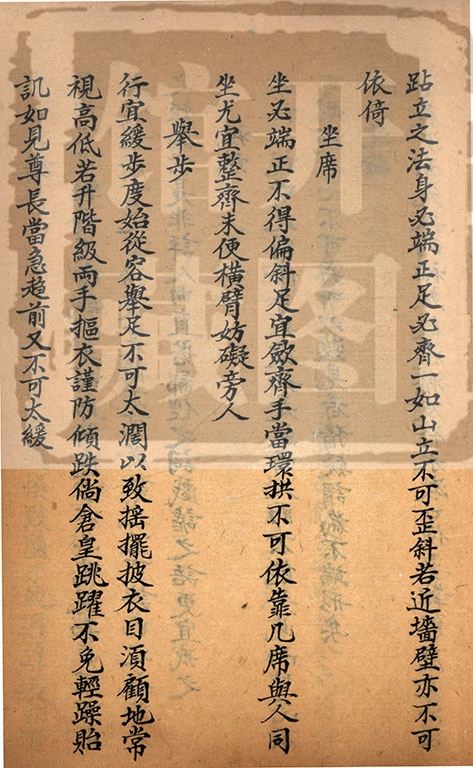 跕立之法身必端正足必齊一如山立不可歪斜若近墻壁亦不可
依倚
坐席
坐必端正不得偏斜足宜歛齊手當環拱不可依靠几席與人同
坐尤宜整齊未便横臂妨礙旁人
舉步
行宜緩步度始從容舉足不可太濶以致摇擺披衣目湏顧地常
視高低若升階級両手摳衣謹防傾跌倘倉皇跳躍不免輕躁貽
譏如見尊長當急趍前又不可太緩